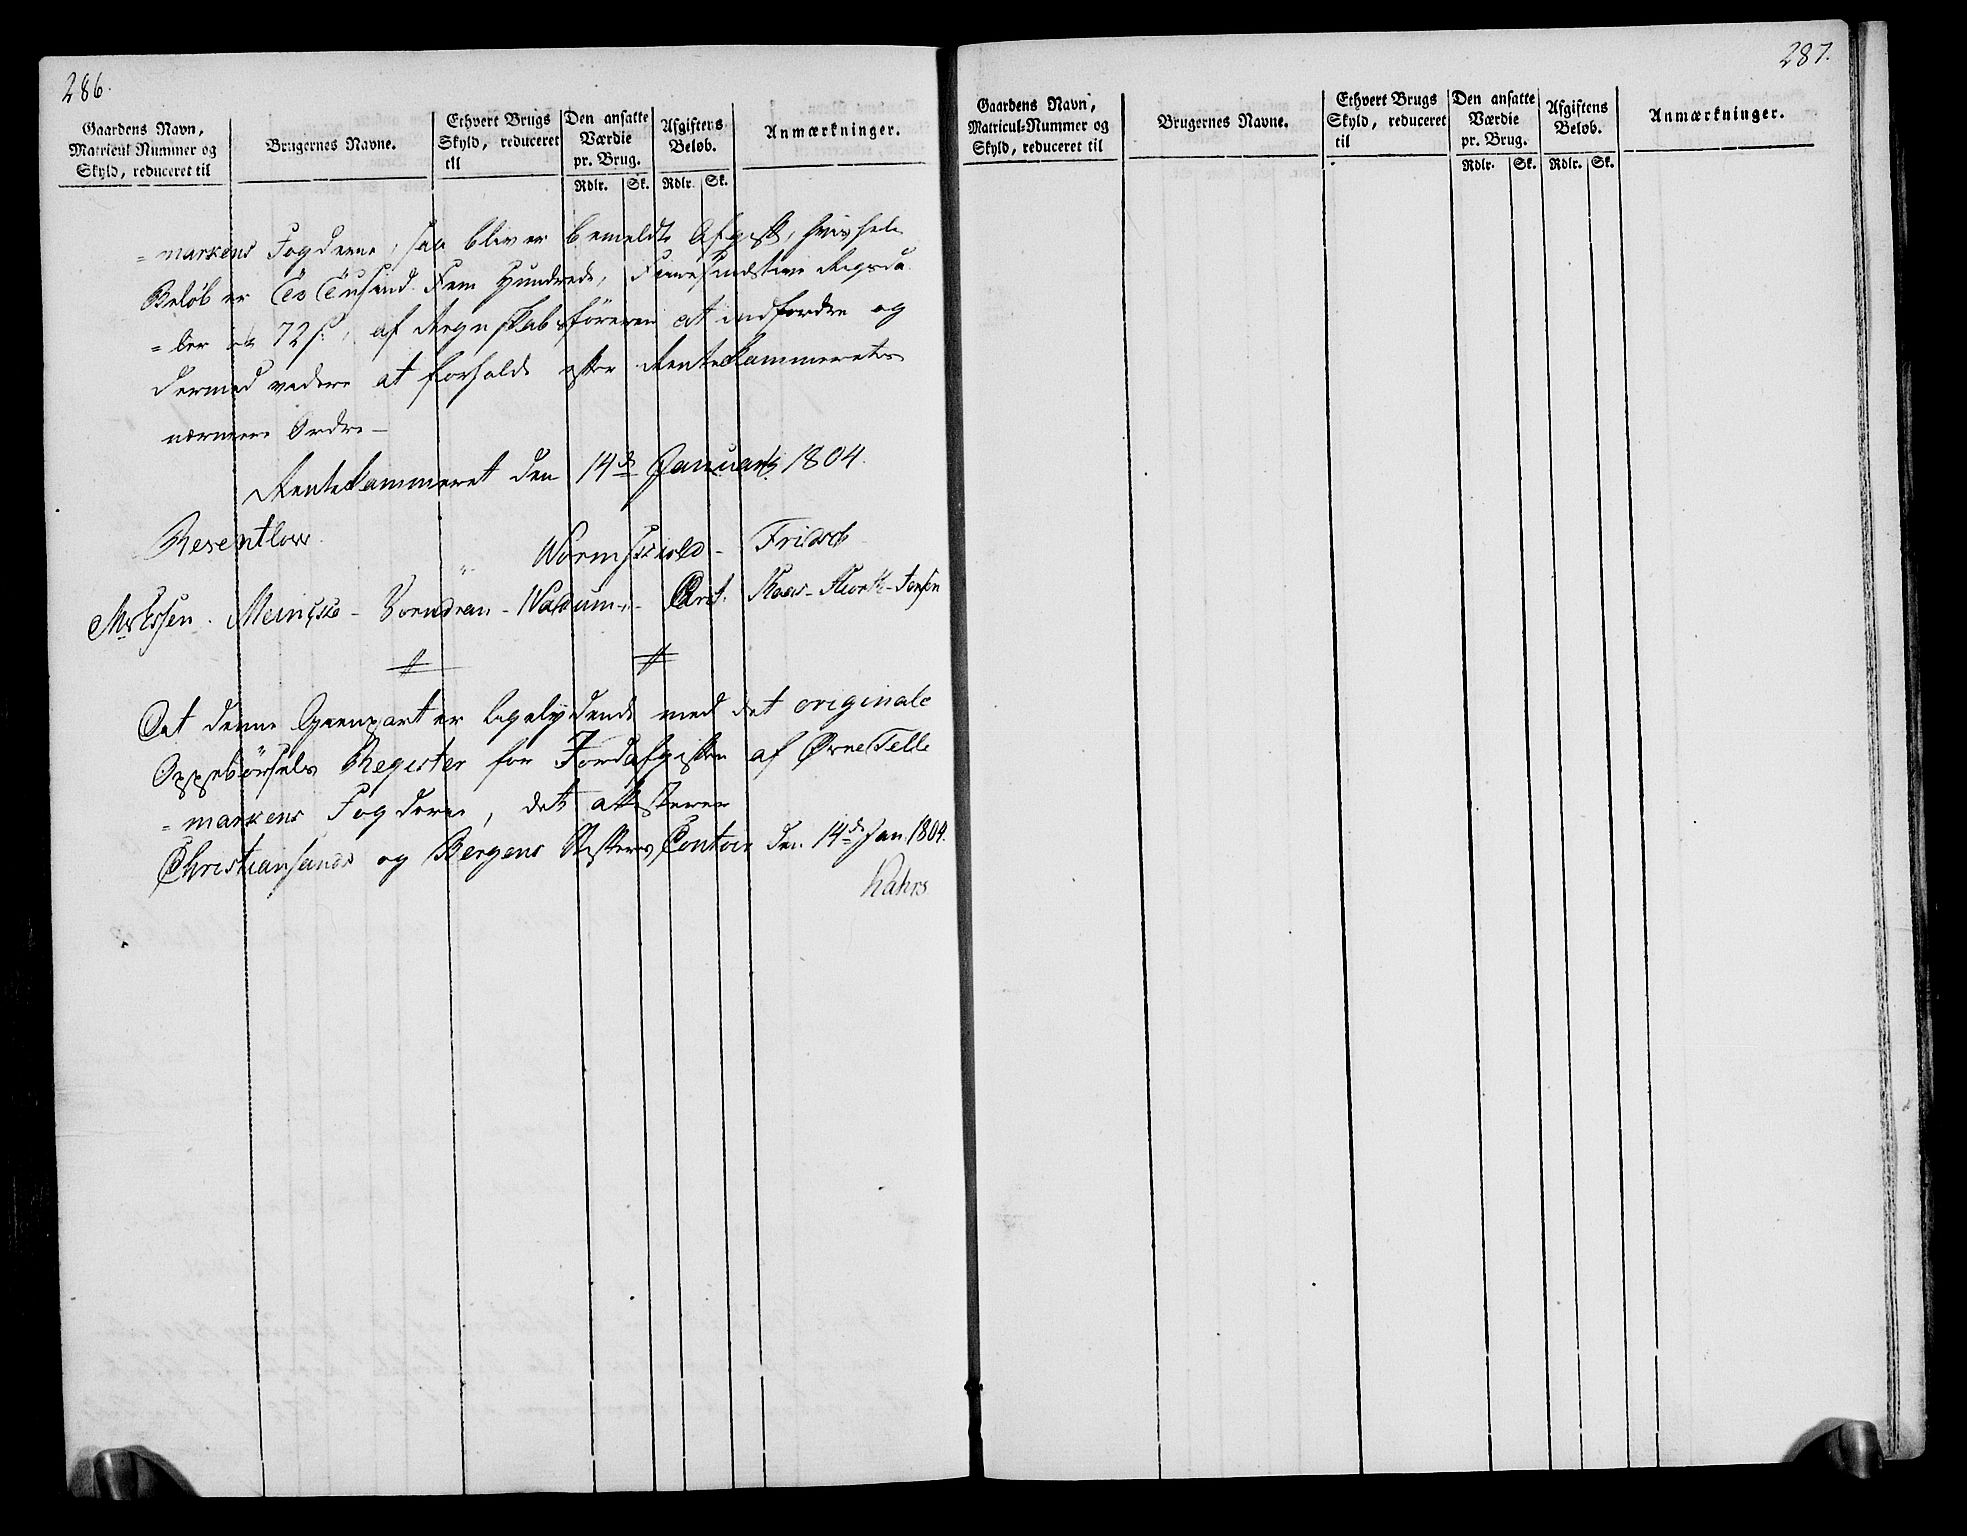 286.
Gaardens Navn,
Matricul Nummer og
Skyld, reduceret til
Brugernes Navne.
Ethvert Brugs
Skyld, reduceret
til
Den ansatte
Værdie
pr. Brug.
Rdlr. Sk.
Afgiftens
Beløb.
Rdlr. Sk.
Anmærkninger.
=markens Fogderie, saa bliver bemeldte Afgift, hvis hele
Beløb er To Tusind Fem Hundrede, Rigsda
=ler og 72 s, af Regnskabsføreren at indfordre og
dermed videre at forholde efter Rentekammerets
nærmere Ordre –
Rentekammeret den 14de Januarii 1804.
Reventlow.
Wormskiold – Fridsch
Meincke – – – Jensen
At denne Gienpart er ligelydende med det originale
Oppebørsels Register for Jordafgiften af Øvre Telle
=markens Fogderie, det attesterer
Christiansands og Bergens Stifters Contoir den 14de Jan. 1804.
287.
Gaardens Navn,
Matricul-Nummer og
Skyld, reduceret til
Brugernes Navne.
Ethvert Brugs
Skyld, reduceret
til
Den ansatte
Værdie
pr. Brug.
Rdlr. Sk.
Afgiftens
Beløb.
Rdlr. Sk.
Anmærkninger.